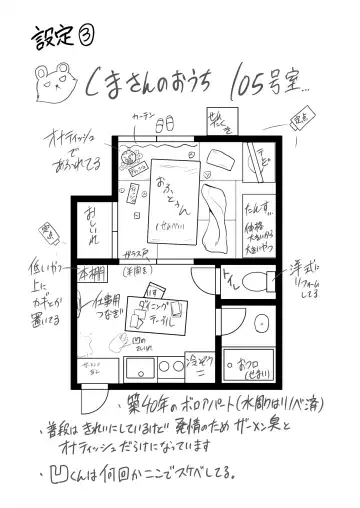 設定③
くまさんのおうち 105号室…
カーテン
せんたくき
定点
オナティッシュ
で
あふれてる
テレビ
おふとぅん
(せまい)
おしいれ
たんす…
価格
大きいから
大きいやつ
定点
ガラス戸
(半開き)
低いやつ
上に
カギとか
置いてる
本棚
トイレ
洋式に
リフォーム
してる
仕事用
つなぎ
イス
ダイニング
テーブル
凹の
冷ぞうこ
おフロ
(せまい)
・築40年のボロアパート(水周りはリノベ済)
・普段はきれいにしているけど発情のためザーメン臭と
オナティッシュだらけになっています
・凹くんは何回かここでスケベしてる。